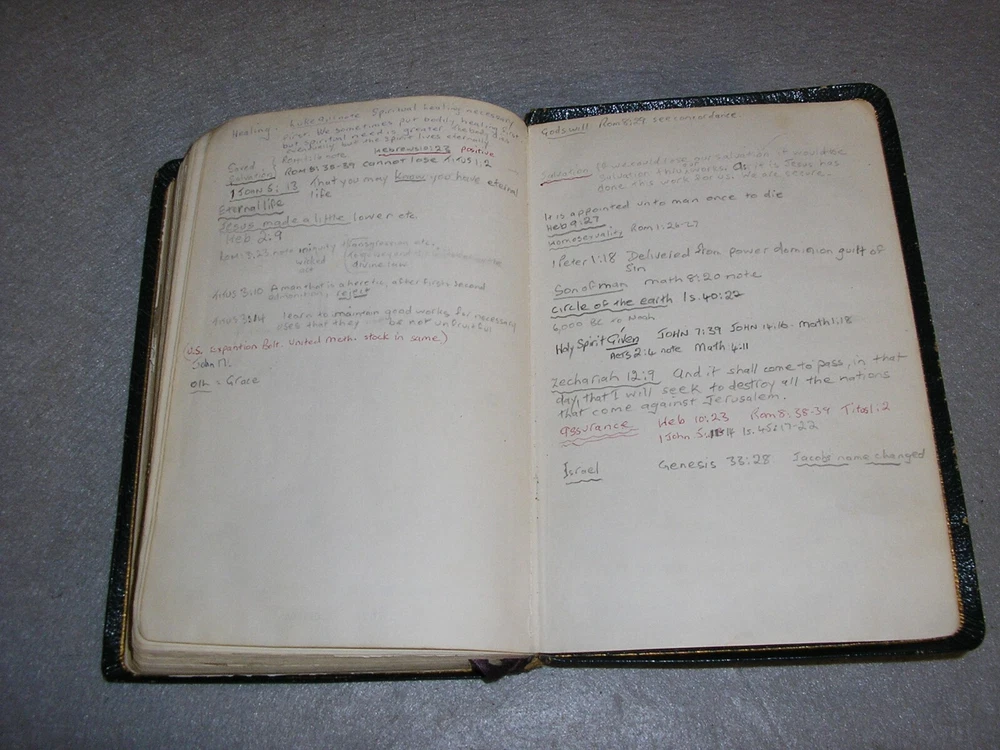 Healing: note Spiritual healing necessary
first. We sometimes put bodily healing first
but spiritual need is greater the body dies
eventually but the spirit lives eternally
Rom note Hebrews 10:23 positive
Saved
Salvation Rom 8:38-39 cannot lose Titus 1:2
1 John 5:13 That you may know you have eternal
life
Eternal life
Jesus made a little lower etc.
Heb 2:9
Rom. 3:23 note iniquity transgression etc.
wicked
divine law
Titus 3:10 A man that is a heretic, after first & second
admonition, reject
Titus 3:14 learn to maintain good works for necessary
uses that they be not unfruitful
(U.S. Expantion Bolt. United Math. stock in same.)
John
= Grace
Gods will Rom 8:29 see concordance.
Salvation If we could lose our salvation it would be
salvation thru works. As it is Jesus has
done this work for us. We are secure.
It is appointed unto man once to die
Heb 9:27
Homosexuality Rom 1:26-27
1 Peter 1:18 Delivered from power dominion guilt of
sin
Son of man math 8:20 note
circle of the earth Is. 40:22
6,000 BC to Noah
Holy Spirit Given JOHN 7:39 JOHN 14:16. Math 1:18
Acts 2:4 note Math 4:11
Zechariah 12:9 And it shall come to pass, in that
day, that I will seek to destroy all the nations
that come against Jerusalem.
Assurance Heb 10:23 Rom 8:38-39 Titas 1:2
1 John 5: Is. 45:17-22
Israel Genesis 33:28 Jacobs name changed